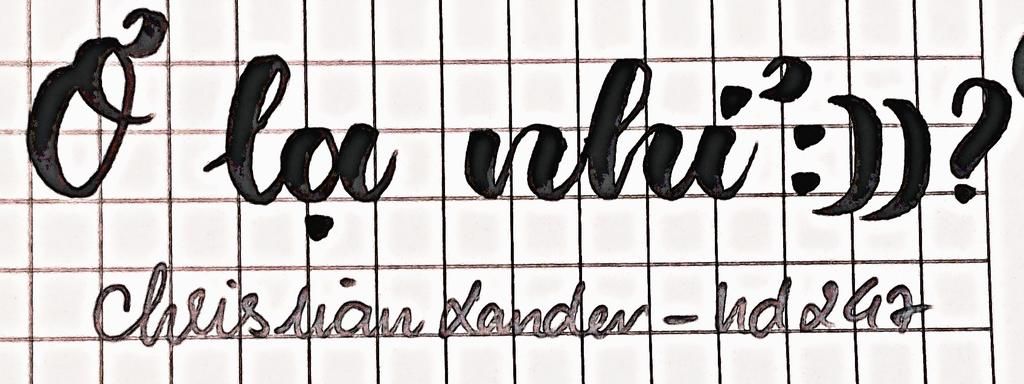 Ở lạ nhỉ :))?
Christian Xander - hd247